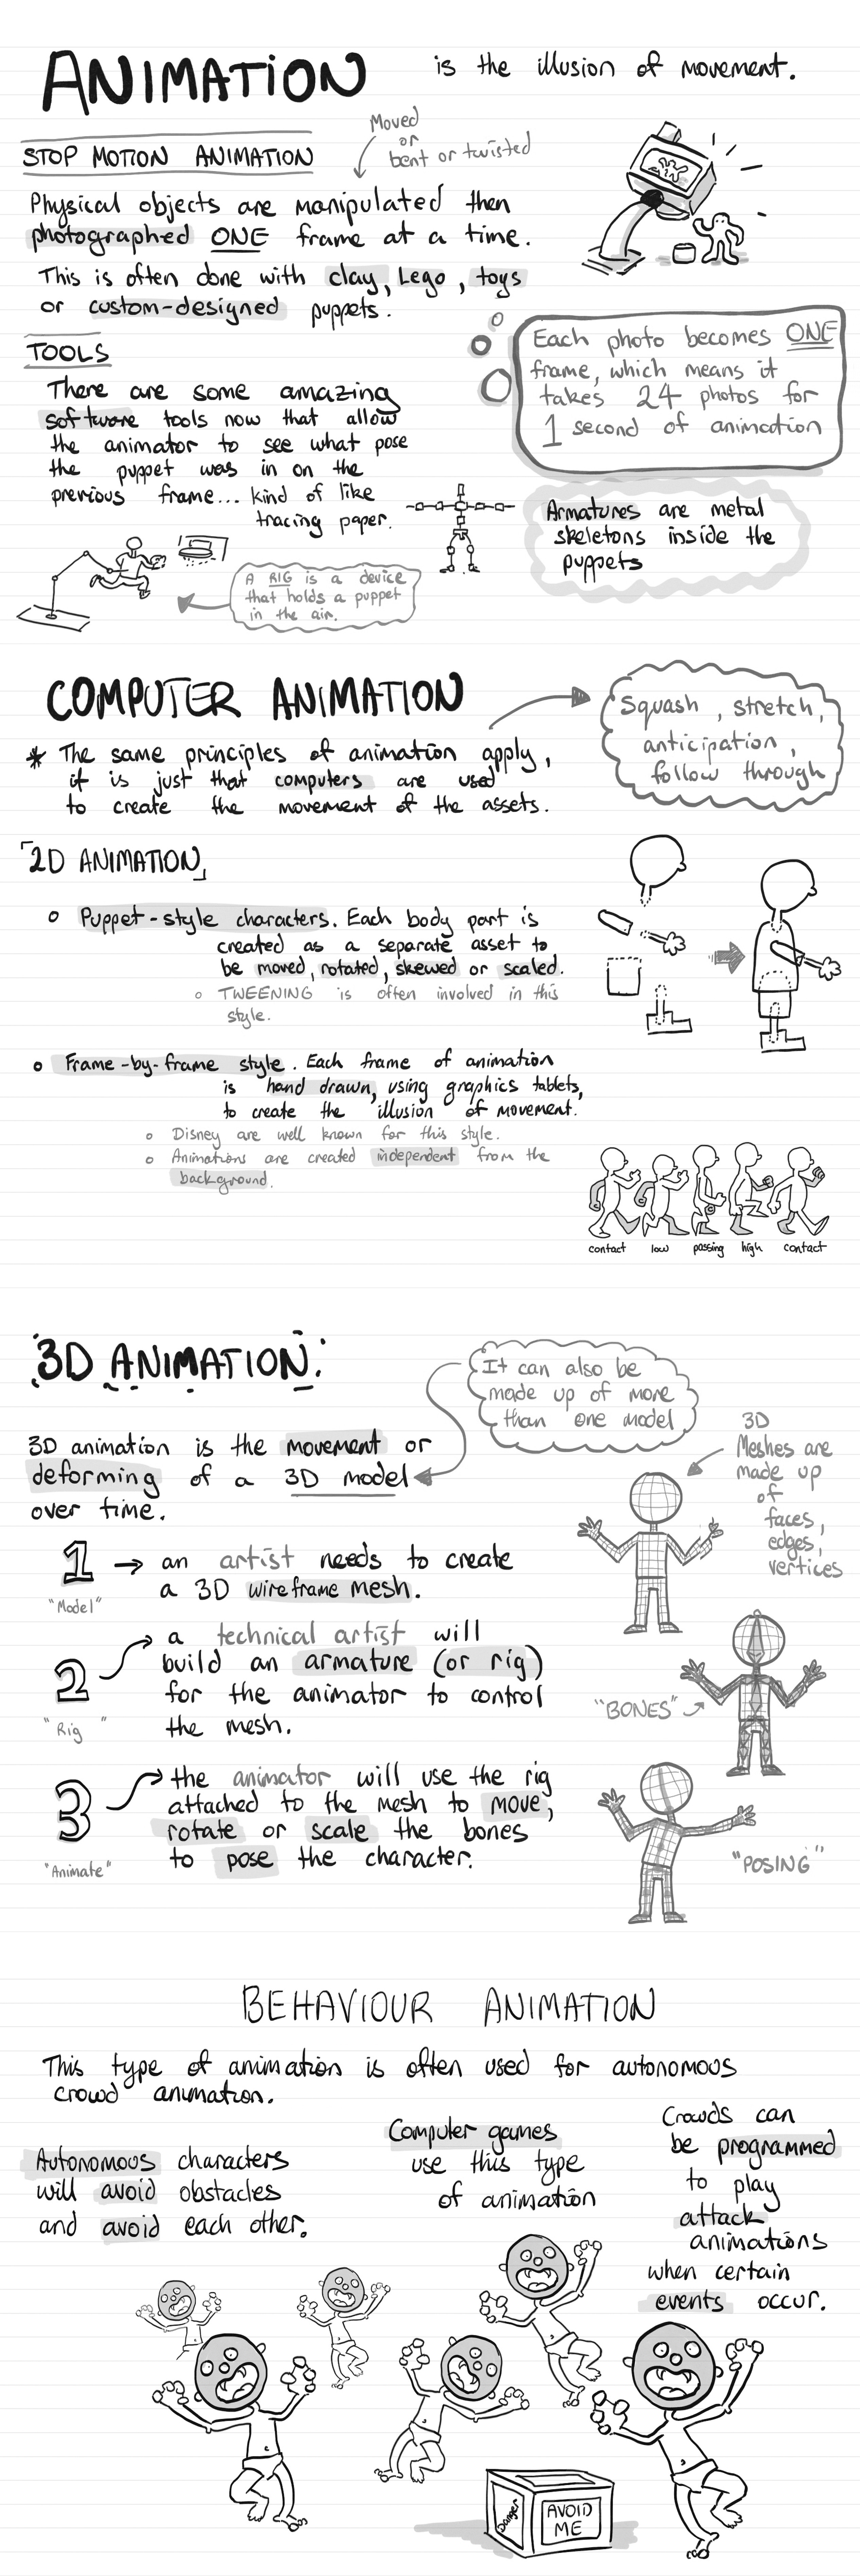 ANIMATION is the illusion of movement.
STOP MOTION ANIMATION
Moved
or
bent or twisted
Physical objects are manipulated then
photographed ONE frame at a time.
This is often done with clay, Lego, toys
or custom-designed puppets.
TOOLS
There are some amazing
software tools now that allow
the animator to see what pose
the puppet was in on the
previous frame... kind of like
tracing paper.
Each photo becomes ONE
frame, which means it
takes 24 photos for
1 second of animation
Armatures are metal
skeletons inside the
puppets
A RIG is a device
that holds a puppet
in the air.
COMPUTER ANIMATION
* The same principles of animation apply,
it is just that computers are used
to create the movement of the assets.
Squash, stretch,
anticipation,
follow through
2D ANIMATION
Puppet-style characters. Each body part is
created as a separate asset to
be moved, rotated, skewed or scaled.
TWEENING is often involved in this
style.
Frame-by-frame style. Each frame of animation
is hand drawn, using graphics tablets,
to create the illusion of movement.
Disney are well known for this style.
Animations are created independent from the
background.
contact low passing high contact
3D ANIMATION
It can also be
made up of more
than one model
3D animation is the movement or
deforming of a 3D model
over time.
3D
Meshes are
made up
of
faces,
edges,
vertices
1 → an artist needs to create
a 3D wireframe mesh.
"Model"
2 a technical artist will
build an armature (or rig)
for the animator to control
the mesh.
"Rig"
"BONES"
3 the animator will use the rig
attached to the mesh to move,
rotate or scale the bones
to pose the character.
"Animate"
"POSING"
BEHAVIOUR ANIMATION
This type of animation is often used for autonomous
crowd animation.
Autonomous characters
will avoid obstacles
and avoid each other.
Computer games
use this type
of animation
Crowds can
be programmed
to play
attack
animations
when certain
events occur.
Danger
AVOID
ME